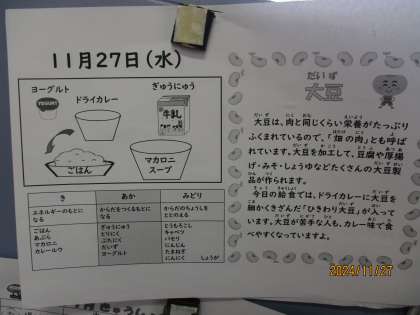 11月27日(水)
ヨーグルト
YOGURT
ドライカレー
ぎゅうにゅう
牛乳
ごはん
マカロニ
スープ
き
あか
みどり
エネルギーのもとに
なる
からだをつくるもとに
なる
からだのちょうしを
ととのえる
ごはん
あぶら
マカロニ
カレールウ
ぎゅうにゅう
とりにく
ぶたにく
だいず
ヨーグルト
とうもろこし
キャベツ
パセリ
にんじん
たまねぎ
にんにく しょうが
だいず
大豆
大豆は、肉と同じくらい栄養がたっぷり
ふくまれているので、「畑の肉」とも呼ば
れています。大豆を加工して、豆腐や厚揚
げ・みそ・しょうゆなどたくさんの大豆製
品が作られます。
今日の給食では、ドライカレーに大豆を
細かくきざんだ「ひきわり大豆」が入って
います。大豆が苦手な人も、カレー味で食
べやすくなっていますよ。
2024/11/27